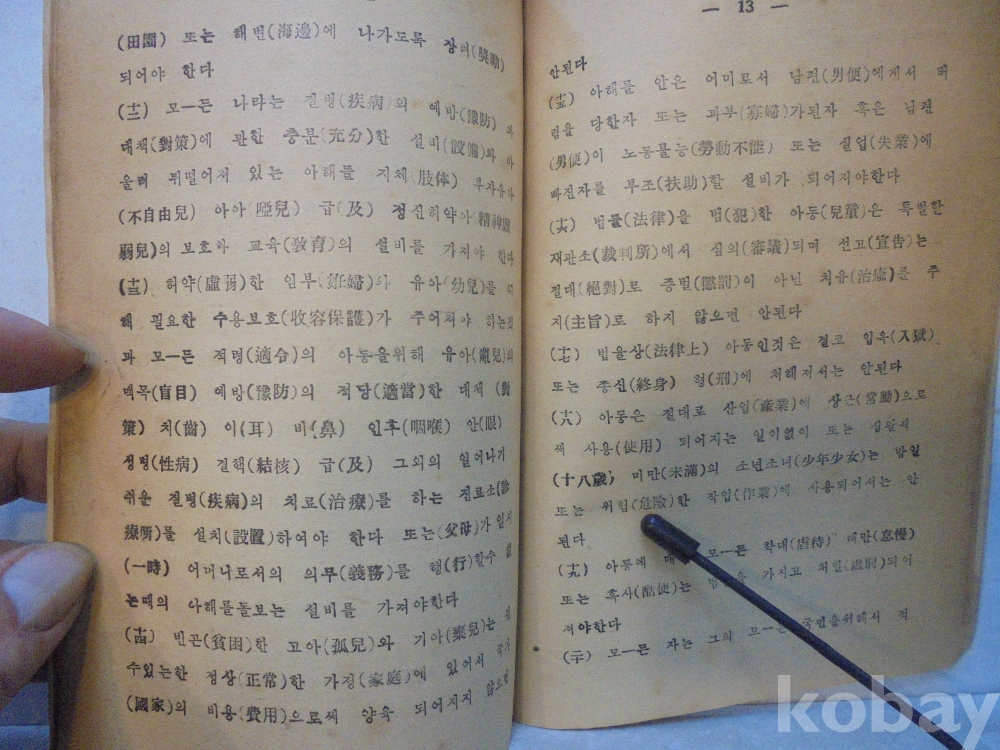 (田園) 또는 해변(海邊)에 나가도록 장려(奬勵)
되어야 한다
(十二) 모—든 나라는 질병(疾病)의 예방(豫防)과
대책(對策)에 관한 충분(充分)한 설비(設備)와 아
울러 뒤떨어져 있는 아해들 지체(肢体) 부자유아
(不自由兒) 아아(啞兒) 급(及) 정신허약아(精神虛
弱兒)의 보호와 교육(敎育)의 설비를 가져야 한다
(十三) 허약(虛弱)한 임부(妊婦)와 유아(幼兒)를 위
해 필요한 수용보호(收容保護)가 주어져야 하는것
과 모—든 적령(適合)의 아동을위해 유아(幼兒)의
맥목(盲目) 예방(豫防)의 적당(適當)한 대책 (對
策) 치(齒) 이(耳) 비(鼻) 인후(咽喉) 안(眼)
성병(性病) 결핵(結核) 급(及) 그외의 일어나기
쉬운 질병(疾病)의 치료(治療)를 하는 진료소(診
療所)를 설치(設置)하여야 한다 또는(父母)가 일시
(一時) 어머니로서의 의무(義務)를 행(行)할수 없
는때의 아해를돌보는 설비를 가져야한다
(十四) 빈곤(貧困)한 고아(孤兒)와 기아(棄兒)는 될
수있는한 정상(正常)한 가정(家庭)에 있어서 국가
(國家)의 비용(費用)으로써 양육 되어지지 않으면
— 13 —
안된다
(十五) 아해를 안은 어미로서 남편(男便)에게서 버
림을 당한자 또는 과부(寡婦)가된자 혹은 남편
(男便)이 노동불능(勞動不能) 또는 실업(失業)에
빠진자를 부조(扶助)할 설비가 되어져야한다
(十六) 법률(法律)을 범(犯)한 아동(兒童)은 특별한
재판소(裁判所)에서 심의(審議)되며 선고(宣告)는
절대(絕對)로 증벌(懲罰)이 아닌 치유(治癒)를 주
지(主旨)로 하지 않으면 안된다
(十七) 법율상(法律上) 아동인것은 결코 입옥(入獄)
또는 종신(終身) 형(刑)에 처해져서는 안된다
(十八) 아동은 절대로 산업(產業)에 상근(常勤)으로
써 사용(使用) 되어지는 일이없이 또는 십팔세
(十八歲) 미만(未滿)의 소년소녀(少年少女)는
또는 위험(危險)한 작업(作業)에 사용되어서는 안
된다
(十九) 아동에 모—든 학대(虐待) 태만(怠慢)
또는 혹사(酷使)는 가지고 처벌(處罰)되어
져야한다
(二十) 모—든 자는 그의 모—든 국민을위해서 적
kobay